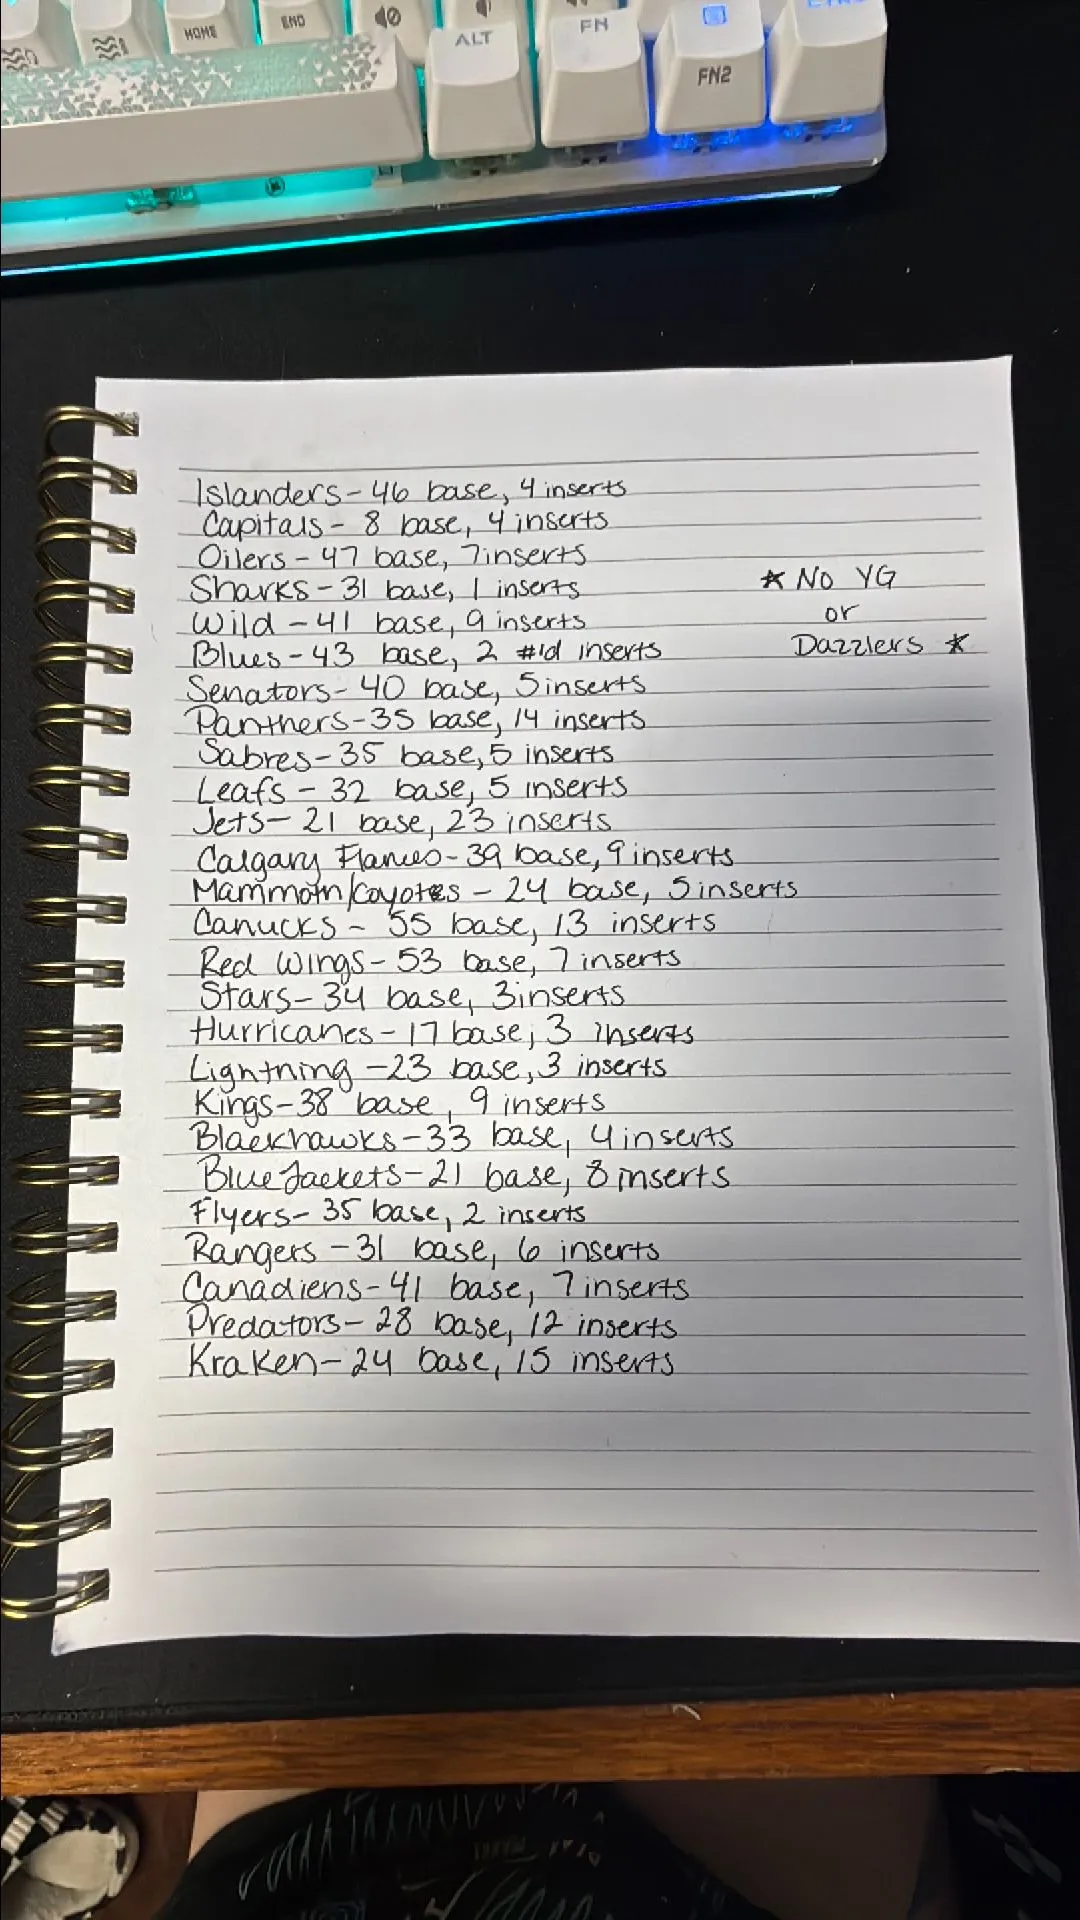 HOME
END
ALT
FN
FN2
Islanders - 46 base, 4 inserts
Capitals - 8 base, 4 inserts
Oilers - 47 base, 7 inserts
Sharks - 31 base, 1 inserts
Wild - 41 base, 9 inserts
Blues - 43 base, 2 #'d inserts
Senators - 40 base, 5 inserts
Panthers - 35 base, 14 inserts
Sabres - 35 base, 5 inserts
Leafs - 32 base, 5 inserts
Jets - 21 base, 23 inserts
Calgary Flames - 39 base, 9 inserts
Mammoth/Coyotes - 24 base, 5 inserts
Canucks - 55 base, 13 inserts
Red Wings - 53 base, 7 inserts
Stars - 34 base, 3 inserts
Hurricanes - 17 base, 3 inserts
Lightning - 23 base, 3 inserts
Kings - 38 base, 9 inserts
Blackhawks - 33 base, 4 inserts
Blue Jackets - 21 base, 8 inserts
Flyers - 35 base, 2 inserts
Rangers - 31 base, 6 inserts
Canadiens - 41 base, 7 inserts
Predators - 28 base, 12 inserts
Kraken - 24 base, 15 inserts
* No YG
or
Dazzlers *